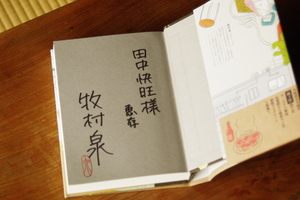 田中快旺樣
惠存
牧村泉